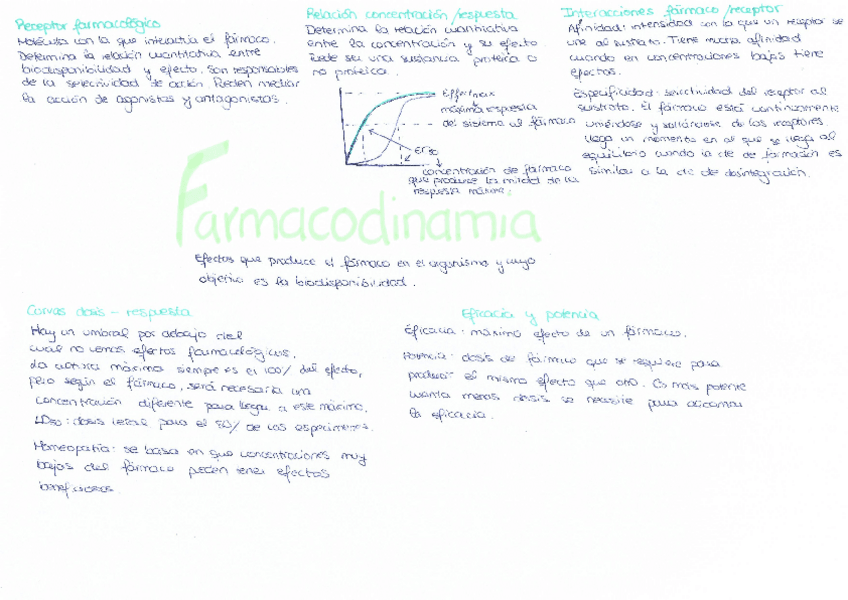 Receptor farmacológico
Molécula con la que interactúa el fármaco.
Determina la relación cuantitativa entre
biodisponibilidad y efecto. Son responsables
de la selectividad de acción. Pueden mediar
la acción de agonistas y antagonistas.
Relación concentración/respuesta
Determina la relación cuantitativa
entre la concentración y su efecto
Puede ser una sustancia proteica o
no proteica.
máxima respuesta
del sistema al fármaco
concentración de fármaco
que produce la mitad de la
respuesta máxima.
Interacciones fármaco/receptor
Afinidad: intensidad con la que un receptor se
une al sustrato. Tiene mucha afinidad
cuando en concentraciones bajas tiene
efectos.
Especificidad: selectividad del receptor al
sustrato. El fármaco está continuamente
uniéndose y soltándose de los receptores
llega un momento en el que se llega al
equilibrio cuando la cte de formación es
similar a la cte de desintegración.
Farmacodinamia
Efectos que produce el fármaco en el organismo y cuyo
objetivo es la biodisponibilidad.
Curvas dosis - respuesta
Hay un umbral por debajo del
cual no vemos efectos farmacológicos.
La altura máxima siempre es el 100% del efecto,
pero según el fármaco, será necesaria una
concentración diferente para llegar a este máximo.
LD50: dosis letal para el 50% de los especímenes.
Homeopatía: se basa en que concentraciones muy
bajas del fármaco pueden tener efectos
beneficiosos.
Eficacia y potencia
Eficacia: máximo efecto de un fármaco.
Potencia: dosis de fármaco que se requiere para
producir el mismo efecto que otro. Es más potente
cuanta menos dosis se necesite para alcanzar
la eficacia.